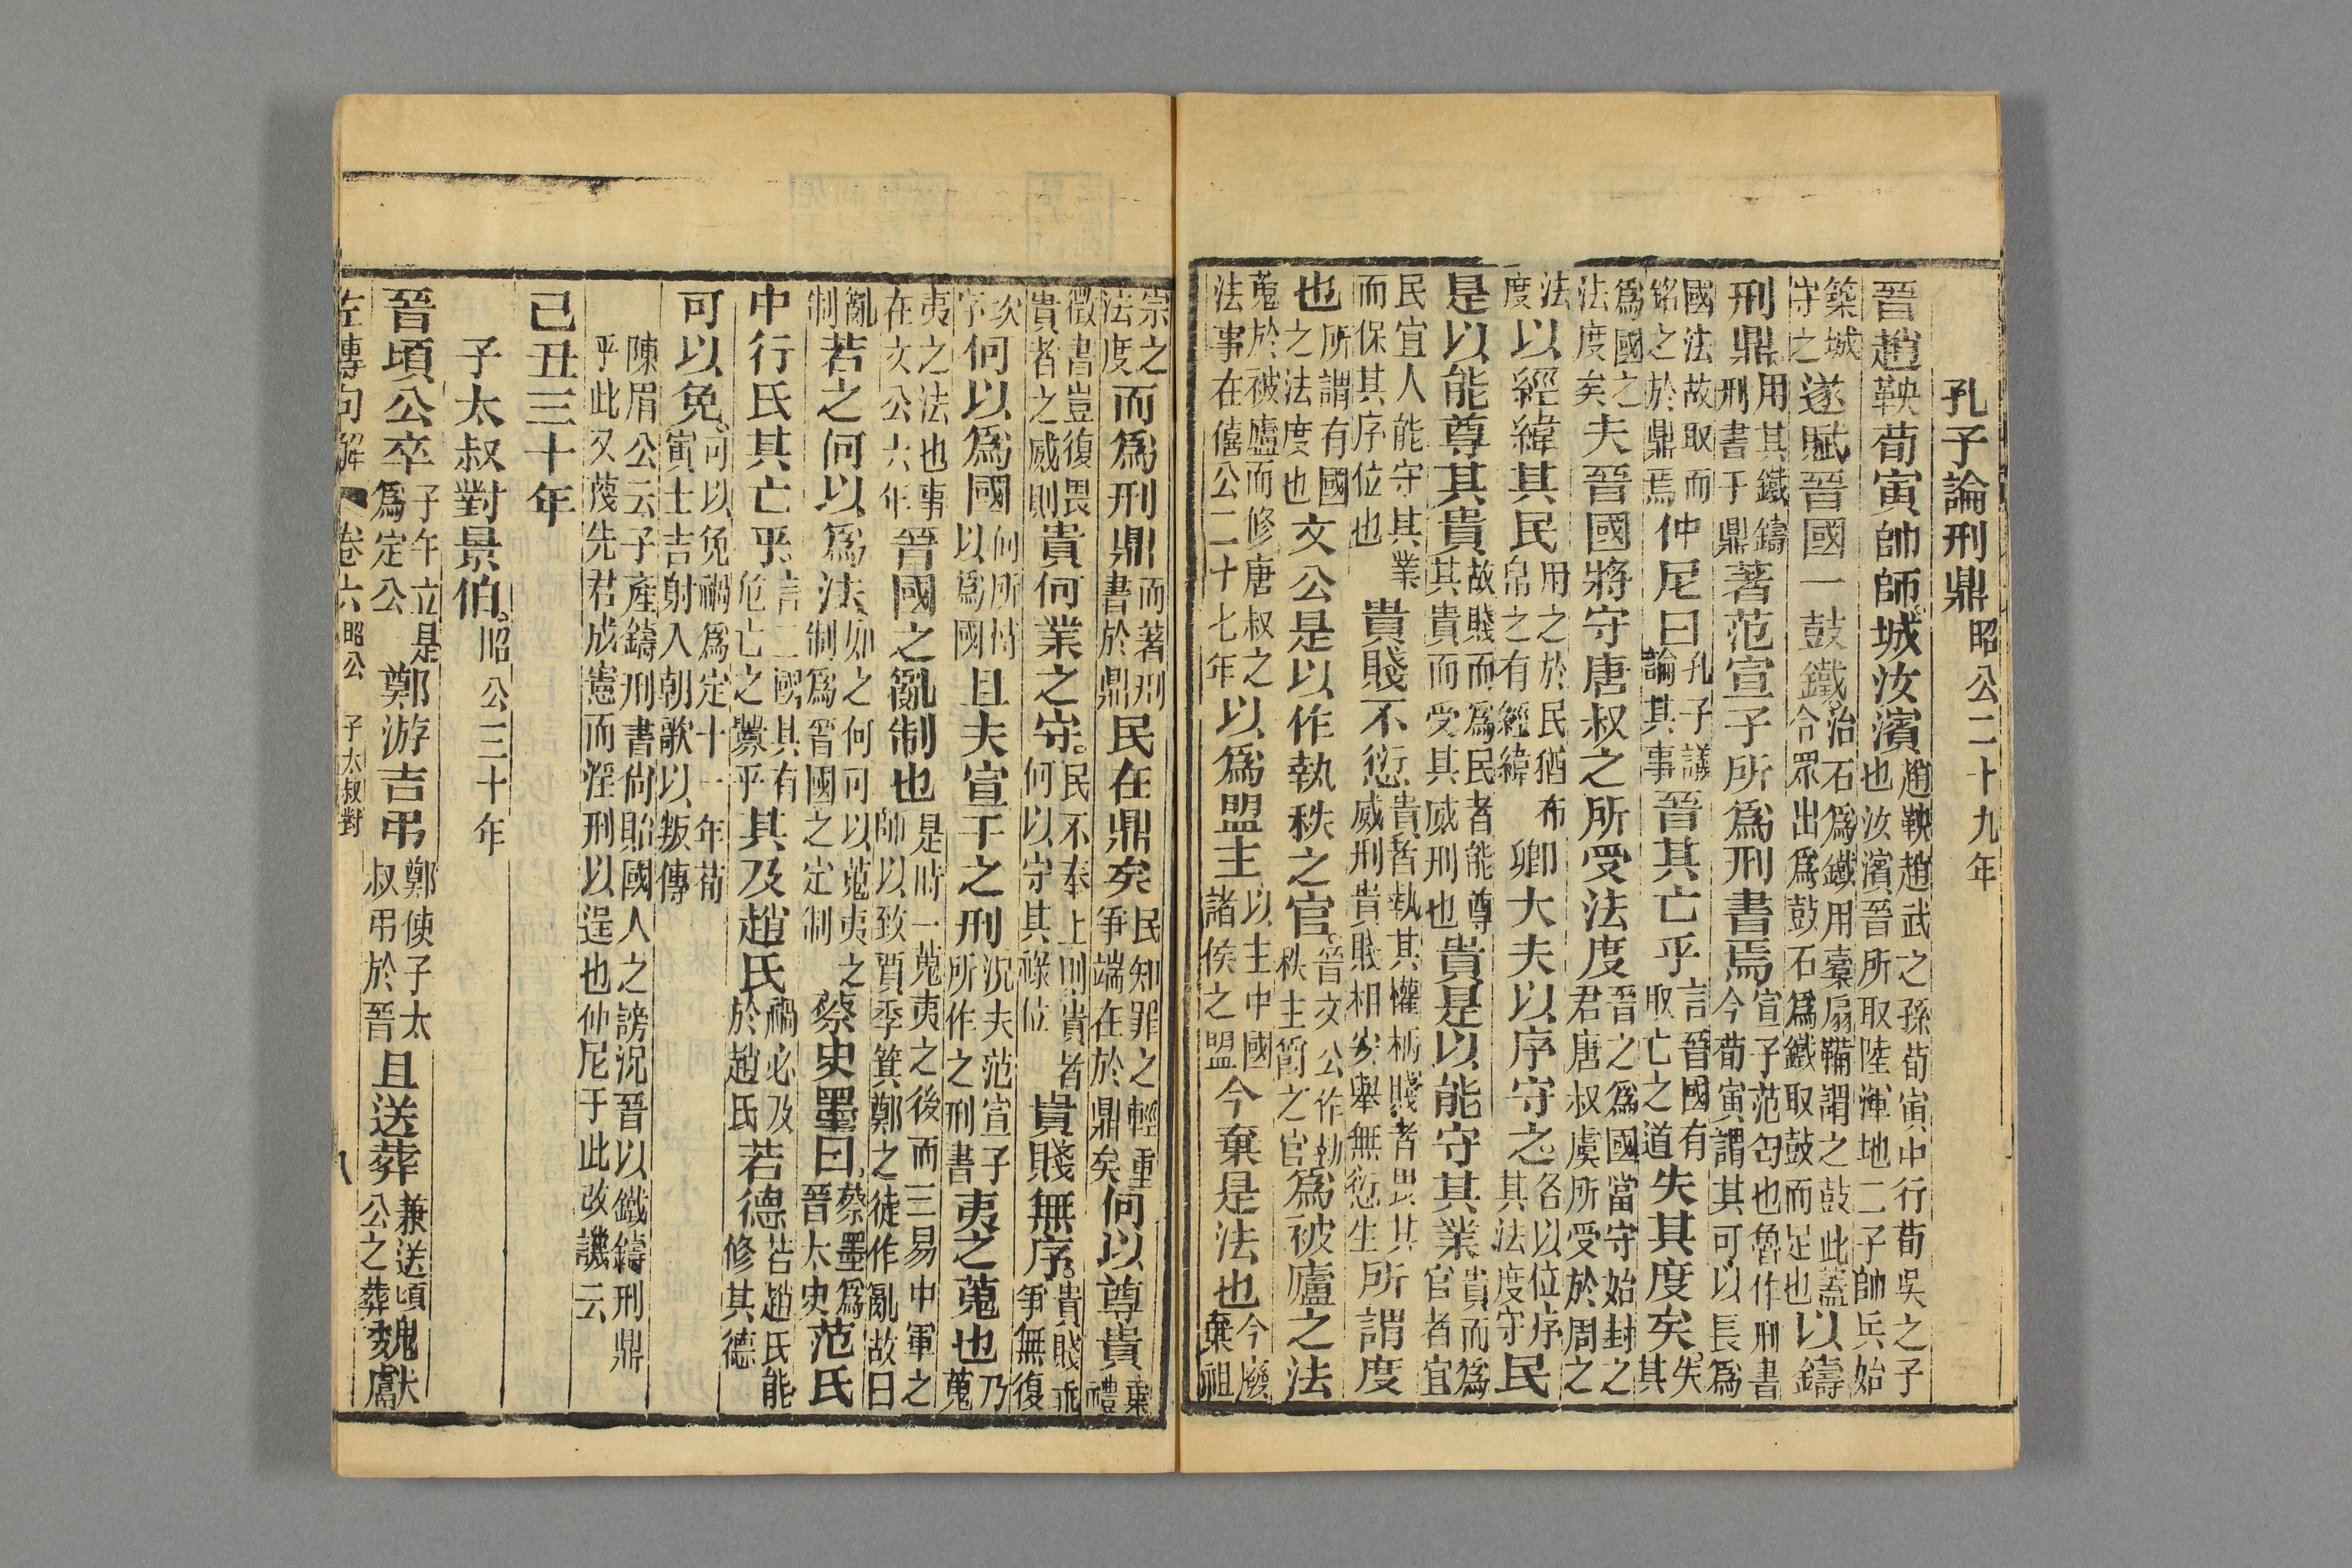 孔子論刑鼎昭公二十九年
晉趙鞅荀寅帥師城汝濱趙鞅趙武之孫荀寅中行荀吳之子也汝濱晉所取陸渾地二子帥兵始
築城守之遂賦晉國一鼓鐵治石爲鐵用槖扇鞴謂之鼓此蓋令眾出爲鼓石爲鐵取鼓而足也以鑄
刑鼎用其鐵鑄刑書于鼎著范宣子所爲刑書焉宣子范匄也魯作刑書今荀寅謂其可以長爲
國法故取而銘之於鼎焉仲尼曰孔子議論其事晉其亡乎言晉國有取亡之道失其度矣失其
爲國之法度矣夫晉國將守唐叔之所受法度晉之爲國當守始封之君唐叔虞所受於周之
法度以經緯其民用之於民猶布帛之有經緯卿大夫以序守之各以位序其法度守民
是以能尊其貴故賤而爲民者能尊其貴而受其威刑也貴是以能守其業貴而爲官者宜
民宜人能守其業而保其序位也貴賤不愆貴者執其權柄賤者畏其威刑貴賤相安舉無愆生所謂度
也所謂有國之法度也文公是以作執秩之官晉文公作執秩主爵之官爲被廬之法
蒐於被廬而修唐叔之法事在僖公二十七年以爲盟主以主中國諸侯之盟今棄是法也今廢棄祖
宗之法度而爲刑鼎而著刑書於鼎民在鼎矣民知罪之輕重爭端在於鼎矣何以尊貴棄禮
徵書豈復畏貴者之威則貴何業之守民不奉上則貴者何以守其祿位貴賤無序貴賤乖爭無復
次序何以爲國何所恃以爲國且夫宣子之刑況夫范宣子所作之刑書夷之蒐也乃蒐
夷之法也事在文公六年晉國之亂制也是時一蒐夷之後而三易中軍之帥以致賈季箕鄭之徒作亂故曰
亂制若之何以爲法如之何可以蒐夷之制爲晉國之定制蔡史墨曰蔡墨爲晉太史范氏
中行氏其亡乎言二國其有危亡之釁乎其及趙氏禍必及於趙氏若德若趙氏能修其德
可以免可以免禍爲定十一年荀寅士吉射入朝歌以叛傳
陳眉公云子產鑄刑書尚貽國人之謗況晉以鐵鑄刑鼎乎此又蔑先君成憲而淫刑以逞也仲尼于此故譏云
己丑三十年
子太叔對景伯昭公三十年
晉頃公卒子午立是爲定公鄭游吉弔鄭使子太叔弔於晉且送葬兼送頃公之葬魏獻
左傳句解 卷六昭公 子太叔對 八